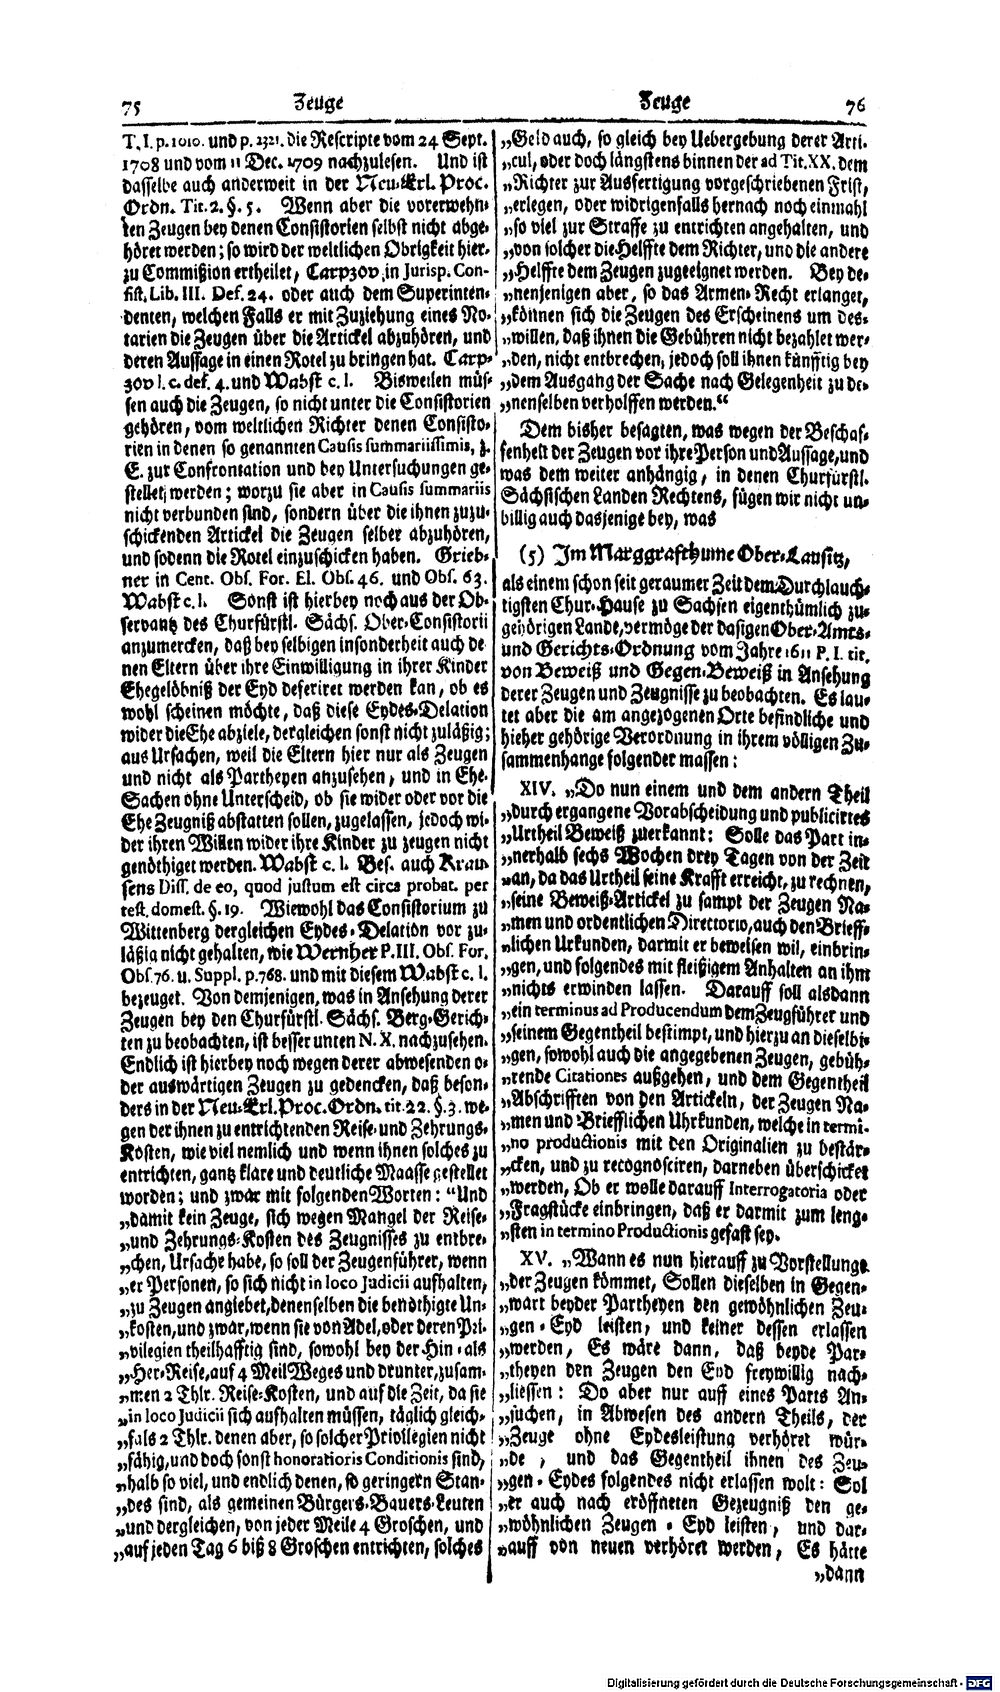 75 Zeuge
T. I. p. 1010. und p. 2321. die Rescripte vom 24 Sept.
1708 und vom 11 Dec. 1709 nachzulesen. Und ist
dasselbe auch anderweit in der Neu-Erl. Proc.
Ordn. Tit. 2. §. 5. Wenn aber die vorerwehn-
ten Zeugen bey denen Consistorien selbst nicht abge-
höret werden; so wird der weltlichen Obrigkeit hier-
zu Commißion ertheilet, Carpzov in Jurisp. Con-
sist. Lib. III. Def. 24. oder auch dem Superinten-
denten, welchen Falls er mit Zuziehung eines No-
tarien die Zeugen über die Artickel abzuhören, und
deren Aussage in einen Rotel zu bringen hat. Carp-
zov l. c. def. 4. und Wabst c. l. Bisweilen müs-
sen auch die Zeugen, so nicht unter die Consistorien
gehören, vom weltlichen Richter denen Consisto-
rien in denen so genannten Causis summariissimis, z.
E. zur Confrontation und bey Untersuchungen ge-
stellet werden; worzu sie aber in Causis summariis
nicht verbunden sind, sondern über die ihnen zuzu-
schickenden Artickel die Zeugen selber abzuhören,
und sodenn die Rotel einzuschicken haben. Grieb-
ner in Cent. Obs. For. El. Obs. 46. und Obs. 63.
Wabst c. l. Sonst ist hierbey noch aus der Ob-
servantz des Churfürstl. Sächs. Ober-Consistorii
anzumercken, daß bey selbigen insonderheit auch de
nen Eltern über ihre Einwilligung in ihrer Kinder
Ehegelöbniß der Eyd deferiret werden kan, ob es
wohl scheinen möchte, daß diese Eydes-Delation
wider die Ehe abziele, dergleichen sonst nicht zuläßig;
aus Ursachen, weil die Eltern hier nur als Zeugen
und nicht als Partheyen anzusehen, und in Ehe-
Sachen ohne Unterscheid, ob sie wider oder vor die
Ehe Zeugniß abstatten sollen, zugelassen, jedoch wi-
der ihren Willen wider ihre Kinder zu zeugen nicht
genöthiget werden. Wabst c. l. Bes. auch Krau
sens Diss. de eo, quod justum est circa probat. per
test. domest. §. 19. Wiewohl das Consistorium zu
Wittenberg dergleichen Eydes-Delation vor zu-
läßig nicht gehalten, wie Wernher P. III. Obs. For.
Obs. 76. u. Suppl. p. 768. und mit diesem Wabst c. l.
bezeuget. Von demjenigen, was in Ansehung derer
Zeugen bey den Churfürstl. Sächs. Berg-Gerich-
ten zu beobachten, ist besser unten N. X. nachzusehen.
Endlich ist hierbey noch wegen derer abwesenden o-
der auswärtigen Zeugen zu gedencken, daß beson-
ders in der Neu-Erl. Proc. Ordn. tit. 22. §. 3. we-
gen der ihnen zu entrichtenden Reise- und Zehrungs-
Kosten, wie viel nemlich und wenn ihnen solches zu
entrichten, gantz klare und deutliche Maasse gestellet
worden; und zwar mit folgenden Worten: “Und
„damit kein Zeuge, sich wegen Mangel der Reise-
„und Zehrungs-Kosten des Zeugnisses zu entbre-
„chen, Ursache habe, so soll der Zeugenführer, wenn
„er Personen, so sich nicht in loco Judicii aufhalten,
„zu Zeugen angiebet, denenselben die benöthigte Un-
„kosten, und zwar, wenn sie von Adel, oder deren Pri-
„vilegien theilhafftig sind, sowohl bey der Hin- als
„Her-Reise, auf 4 Meil Weges und drunter, zusam-
„men 2 Thlr. Reise-Kosten, und auf die Zeit, da sie
„in loco Judicii sich aufhalten müssen, täglich gleich-
„fals 2 Thlr. denen aber, so solcher Privilegien nicht
„fähig, und doch sonst honoratioris Conditionis sind,
„halb so viel, und endlich denen, so geringern Stan-
„des sind, als gemeinen Bürgers-Bauers-Leuten
„und dergleichen, von jeder Meile 4 Groschen, und
„auf jeden Tag 6 biß 8 Groschen entrichten, solches
Zeuge 76
„Geld auch, so gleich bey Uebergebung derer Arti-
„cul, oder doch längstens binnen der ad Tit. XX. dem
„Richter zur Ausfertigung vorgeschriebenen Frist,
„erlegen, oder widrigenfalls hernach noch einmahl
„so viel zur Straffe zu entrichten angehalten, und
„von solcher die Helffte dem Richter, und die andere
„Helffte dem Zeugen zugeeignet werden. Bey de-
„nenjenigen aber, so das Armen-Recht erlanget,
„können sich die Zeugen des Erscheinens um des-
„willen, daß ihnen die Gebühren nicht bezahlet wer-
„den, nicht entbrechen, jedoch soll ihnen künfftig bey
„dem Ausgang der Sache nach Gelegenheit zu de-
„nenselben verholffen werden.“
Dem bisher besagten, was wegen der Beschaf-
fenheit der Zeugen vor ihre Person und Aussage, und
was dem weiter anhängig, in denen Churfürstl.
Sächsischen Landen Rechtens, fügen wir nicht un-
billig auch dasjenige bey, was
(5) Im Marggrafthume Ober-Lausitz,
als einem schon seit geraumer Zeit dem Durchlauch-
tigsten Chur-Hause zu Sachsen eigenthümlich zu-
gehörigen Lande, vermöge der dasigen Ober-Amts-
und Gerichts-Ordnung vom Jahre 1611 P. I. tit.
von Beweiß und Gegen-Beweiß in Ansehung
derer Zeugen und Zeugnisse zu beobachten. Es lau-
tet aber die am angezogenen Orte befindliche und
hieher gehörige Verordnung in ihrem völligen Zu-
sammenhange folgender massen:
XIV. „Do nun einem und dem andern Theil
„durch ergangene Vorabscheidung und publicirtes
„Urtheil Beweiß zuerkannt: Solle das Part in-
„nerhalb sechs Wochen drey Tagen von der Zeit
„an, da das Urtheil seine Krafft erreicht, zu rechnen,
„seine Beweiß-Artickel zu sampt der Zeugen Na-
„men und ordentlichen Directorio, auch den Brieff-
„lichen Urkunden, darmit er beweisen wil, einbrin-
„gen, und folgendes mit fleißigem Anhalten an ihm
„nichts erwinden lassen. Darauff soll alsdann
„ein terminus ad Producendum dem Zeugführer und
„seinem Gegentheil bestimpt, und hierzu an dieselbi-
„gen, sowohl auch die angegebenen Zeugen, gebüh-
„rende Citationes außgehen, und dem Gegentheil
„Abschrifften von den Artickeln, der Zeugen Na-
„men und Briefflichen Uhrkunden, welche in termi-
„no productionis mit den Originalien zu bestär-
„cken, und zu recognosciren, darneben überschicket
„werden, Ob er wolle darauff Interrogatoria oder
„Fragstücke einbringen, daß er darmit zum leng-
„sten in termino Productionis gefast sey.
XV. „Wann es nun hierauff zu Vorstellunge
„der Zeugen kömmet, Sollen dieselben in Gegen-
„wart beyder Partheyen den gewöhnlichen Zeu-
„gen-Eyd leisten, und keiner dessen erlassen
„werden, Es wäre dann, daß beyde Par-
„theyen den Zeugen den Eyd freywillig nach-
„liessen: Do aber nur auff eines Parts An-
„suchen, in Abwesen des andern Theils, der
„Zeuge ohne Eydesleistung verhöret wür-
„de, und das Gegentheil ihnen des Zeu-
„gen-Eydes folgendes nicht erlassen wolt: Sol
„er auch nach eröffneten Gezeugniß den ge-
„wöhnlichen Zeugen-Eyd leisten, und dar-
„auff von neuen verhöret werden, Es hätte
„dann
Digitalisierung gefördert durch die Deutsche Forschungsgemeinschaft - DFG